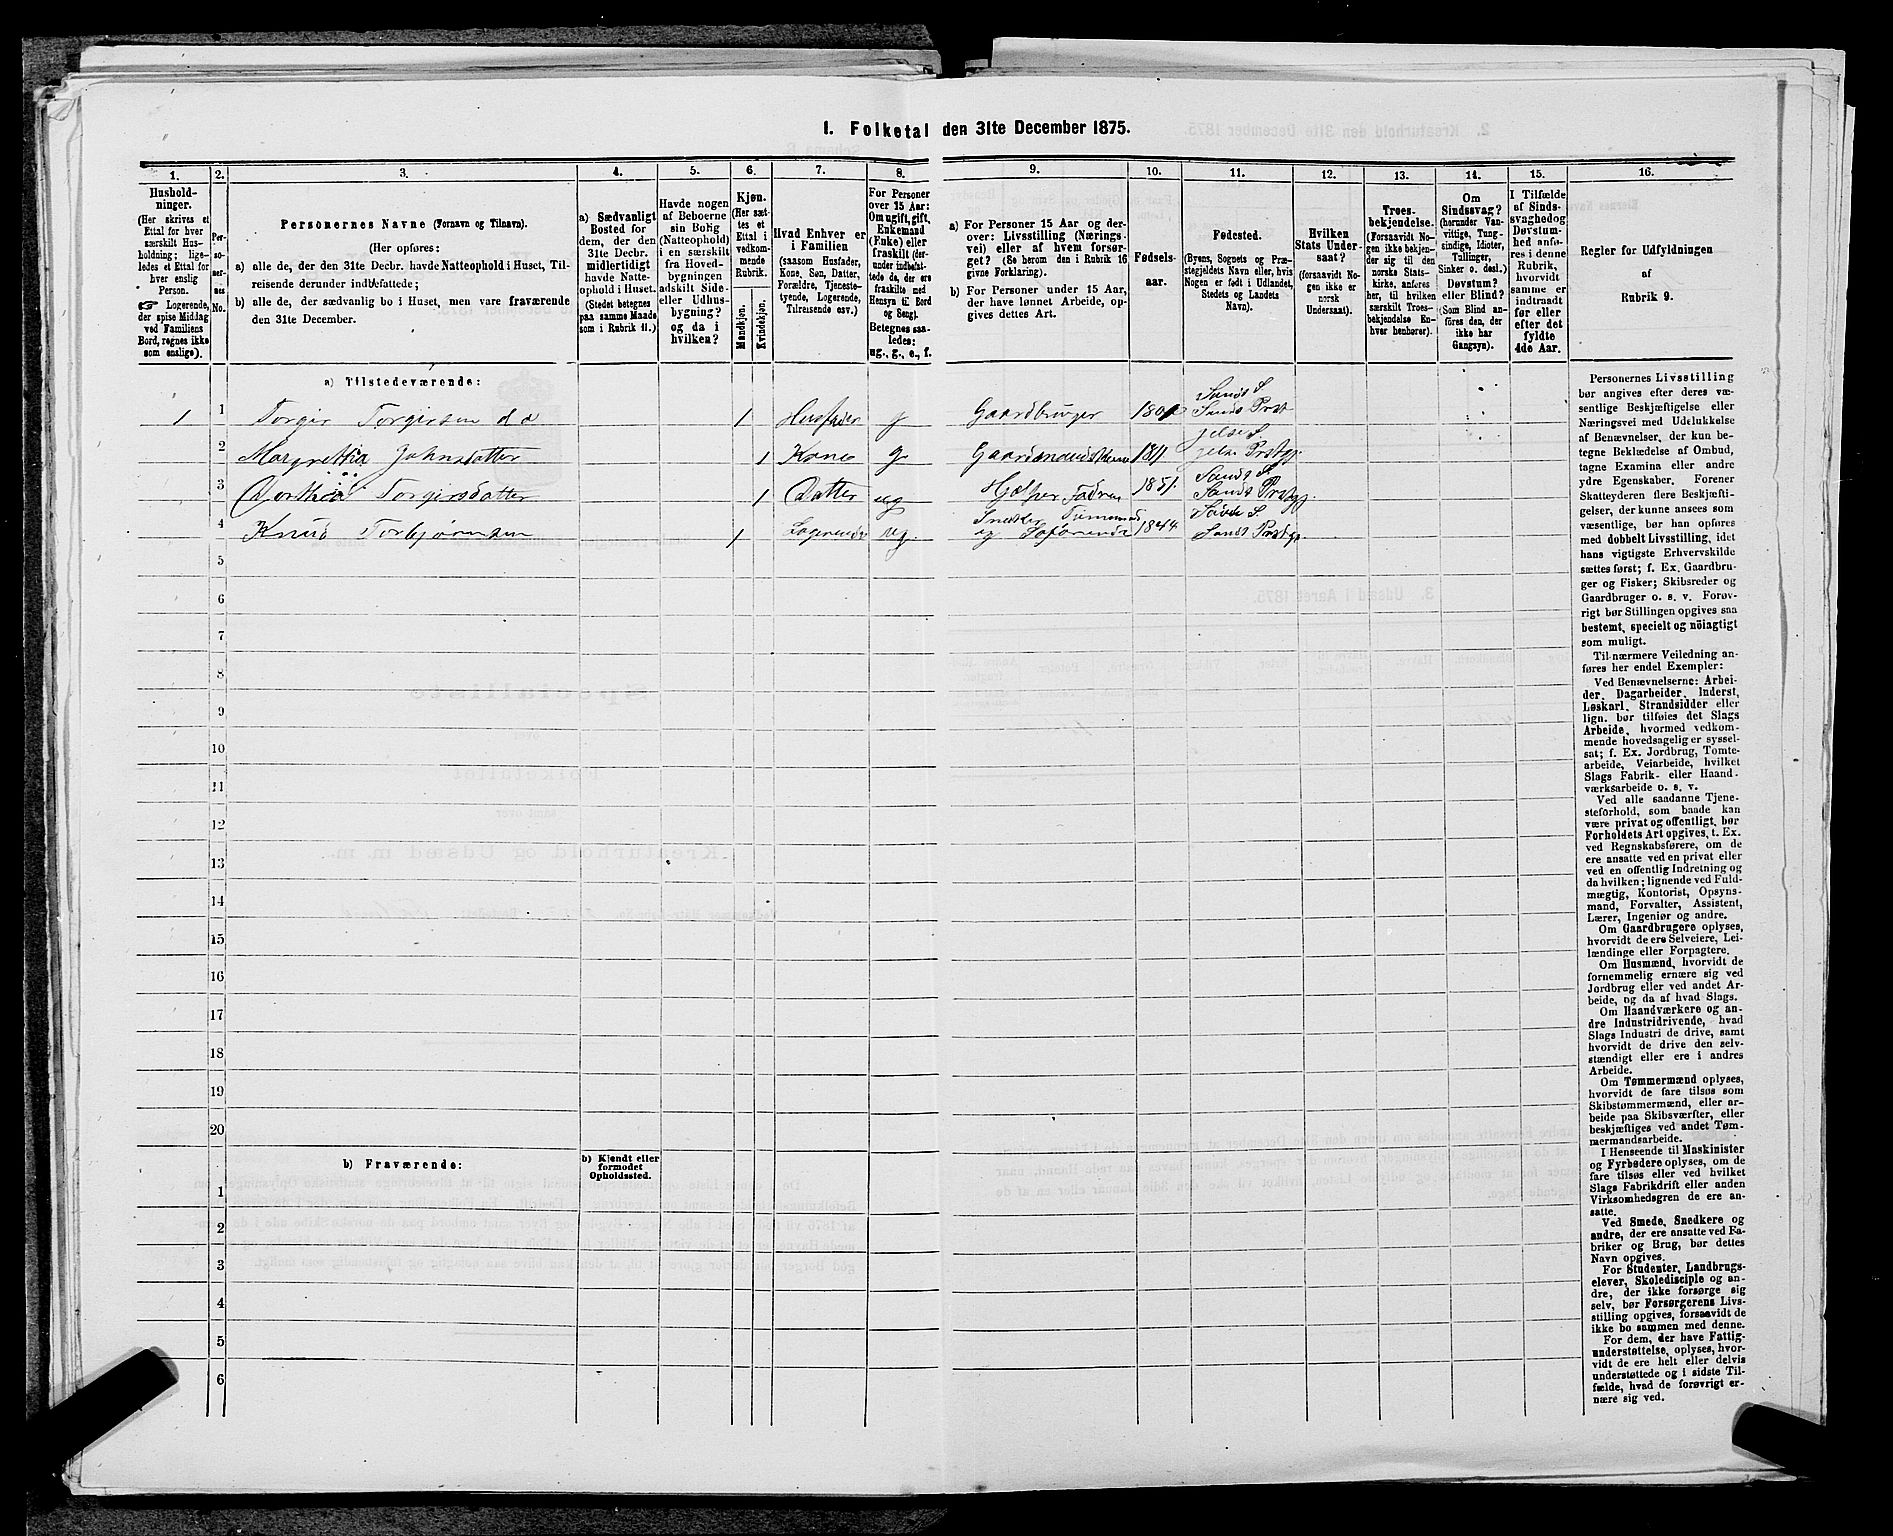 1. Folketal den 31te December 1875.
1.
Hushold-
ninger.
(Her skrives et
Ettal for hver
særskilt Hus-
holdning; lige-
ledes et Ettal for
hver enslig
Person.
☞ Logerende,
der spise Middag
ved Familiens
Bord, regnes ikke
som enslige).
2.
Per-
so-
ner-
nes
No.
3.
Personernes Navne (Fornavn og Tilnavn).
(Her opføres:
a) alle de, der den 31te Decbr. havde Natteophold i Huset, Til-
reisende derunder indbefattede;
b) alle de, der sædvanlig bo i Huset, men vare fraværende
den 31te December.
4.
a) Sædvanligt
Bosted for
dem, der den
31te Decbr.
midlertidigt
havde Natte-
ophold i Huset.
(Stedet betegnes
paa samme Maade
som i Rubrik 11.)
5.
Havde nogen
af Beboerne
sin Bolig
(Natteophold)
i en særskilt
fra Hoved-
bygningen
adskilt Side-
eller Udhus-
bygning?
og da i
hvilken?
6.
Kjøn.
(Her sæt-
tes et
Ettal i
vedkom-
mende
Rubrik.
Mandkjøn.
Kvindekjøn.
7.
Hvad Enhver er
i Familien
(saasom Husfader,
Kone, Søn, Datter,
Forældre, Tjeneste-
tyende, Logerende,
Tilreisende osv.)
8.
For Personer
over 15 Aar:
Om ugift, gift,
Enkemand
(Enke) eller
fraskilt (der-
under indbefat-
tede de, der ere
fraskilte med
Hensyn til Bord
og Seng).
Betegnes saa-
ledes:
ug., g., e., f.
9.
a) For Personer 15 Aar og der-
over: Livsstilling (Nærings-
vei) eller af hvem forsør-
get? (Se herom den i Rubrik 16
givne Forklaring).
b) For Personer under 15 Aar,
der have lønnet Arbeide, op-
gives dettes Art.
10.
Fødsels-
aar.
11.
Fødested.
(Byens, Sognets og Præ-
stegjeldets Navn eller, hvis
Nogen er født i Udlandet,
Stedets og Landets
Navn).
12.
Hvilken
Stats Under-
saat?
(forsaavidt No-
gen ikke er
norsk
Undersaat).
13.
Troes-
bekjendelse.
(Forsaavidt No-
gen ikke bekjen-
der sig til den
norske Stats-
kirke, anføres
her, til hvilken
særskilt Troes-
bekjendelse En-
hver henhører).
14.
Om
Sindssvag?
(herunder Van-
vittige, Tung-
sindige, Idioter,
Tullinger,
Sinker o. desl.)
Døvstum?
eller Blind?
(Som Blind an-
føres den, der
ikke har
Gangsyn).
15.
I Tilfælde
af Sinds-
svaghedog
Døvstum-
hed anfø-
res i denne
Rubrik,
hvorvidt
samme er
indtraadt
før eller
efter det
fyldte
4de Aar.
16.
Regler for Udfyldningen
af
Rubrik 9.
a) Tilstedeværende:
1 1 Torgir Torgirsen d.æ 1 Husfader g Gaardbruger Sands S. Sands Prst
2 Margrettia Johnsdatter 1 Kone g 1811 Jelse S. Jelse Prstgj.
3 Dorthea Torgirsdatter 1 Datter ug Hjælper Fadren 1851. Sands S. Sands Prstgj.
4 Knud Torbjørnsen 1 Logerende ug. Snedker Tømmermand og 1844 Sands S. Sands Prstgj.
5
6
7
8
9
10
11
12
13
14
15
16
17
18
19
20
b) Fraværende:
b) Kjendt eller
formodet
Opholdssted.
1
2
3
4
5
6
Personernes Livsstilling
bør angives efter deres væ-
sentlige Beskjæftigelse eller
Næringsvei med Udelukkelse
af Benævnelser, der kun be-
tegne Beklædelse af Ombud,
tagne Examina eller andre
ydre Egenskaber. Forener
Skatteyderen flere Beskjæfti-
gelser, der kunne ansees som
væsentlige, bør han opføres
med dobbelt Livsstilling, idet
hans vigtigste Erhvervskilde
sættes først; f. Ex. Gaardbru-
ger og Fisker; Skibsreder og
Gaardbruger o. s. v. Forøv-
rigt bør Stillingen opgives saa
bestemt, specielt og nöiagtigt
som muligt.
Til nærmere Veiledning an-
føres her endel Exempler:
Ved Benævnelserne: Arbei-
der, Dagarbeider, Inderst,
Løskarl, Strandsidder eller
lign. bør tilføies det Slags
Arbeide, hvormed vedkom-
mende hovedsagelig er syssel-
sat; f. Ex. Jordbrug, Tomte-
arbeide, Veiarbeide, hvilket
Slags Fabrik- eller Haand-
værksarbeide o. s. v.
Ved alle saadanne Tjene-
steforhold, som baade kan
være privat og offentligt, bør
Forholdets Art opgives, t. Ex.
ved Regnskabsførere, om de
ere ansatte ved en privat eller
ved en offentlig Indretning og
da hvilken; lignende ved Fuld-
mægtig, Kontorist, Opsyns-
mand, Forvalter, Assistent,
Lærer, Ingeniør og andre.
Om Gaardbrugere oplyses,
hvorvidt de ere Selveiere, Lei-
lændinge eller Forpagtere.
Om Husmænd, hvorvidt de
fornemmelig ernære sig ved
Jordbrug eller ved andet Ar-
beide, og da af hvad Slags.
Om Haandværkere og an-
dre Industridrivende, hvad
Slags Industri de drive, samt
hvorvidt de drive den selv-
stændigt eller ere i andres
Arbeide.
Om Tømmermænd oplyses,
hvorvidt de fare tilsøs som
Skibstømmermænd, eller ar-
beide paa Skibsværfter, eller
beskjæftiges ved andet Tøm-
mermandsarbeide.
I Henseende til Maskinister
og Fyrbødere oplyses, om de
fare tilsøs eller ved hvilket
Slags Fabrikdrift eller anden
Virksomhedsgren de ere an-
satte.
Ved Smede, Snedkere og
andre, der ere ansatte ved Fa-
briker og Brug, bør dettes
Navn opgives.
For Studenter, Landbrugs-
elever, Skoledisciple og an-
dre, der ikke forsørge sig
selv, bør Forsørgerens Livs-
stilling opgives, forsaavidt de
ikke bo sammen med denne.
For dem, der have Fattig-
understøttelse, oplyses, hvor-
vidt de ere helt eller delvis
understøttede og i sidste Til-
fælde, hvad de forøvrigt er-
nære sig ved.